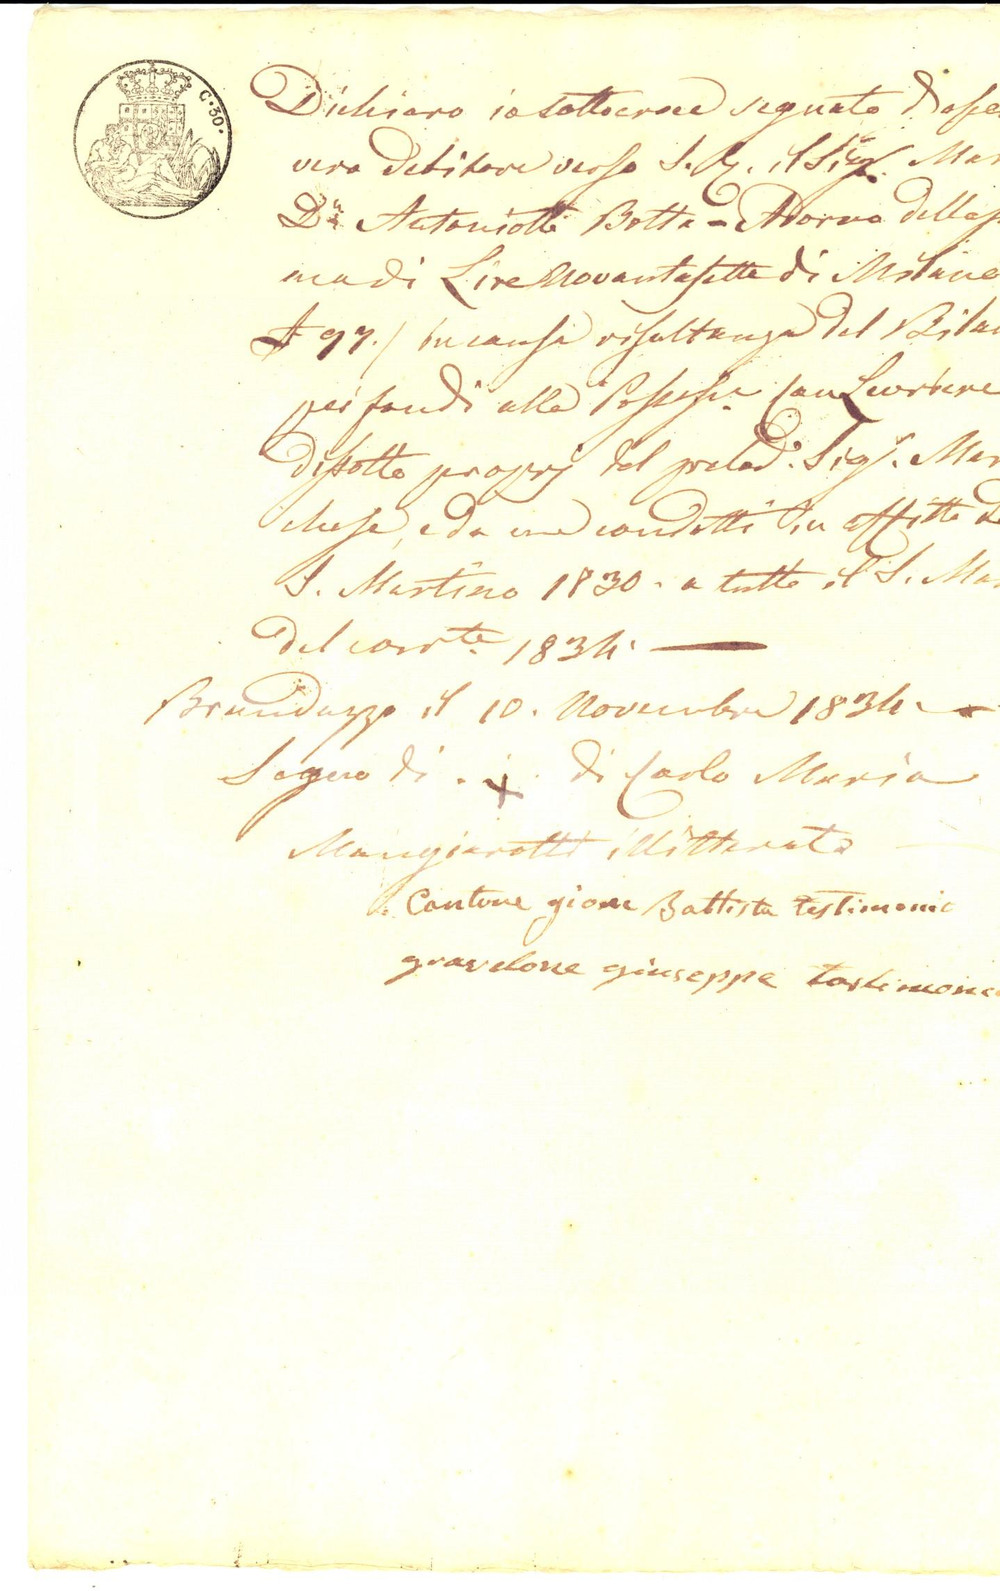 C. 30.
Dichiaro io sottocroce segnato d'esse
vero debitore verso S. E. il Sigr. Mar
Dn Antoniotto Botta = Adorno della so
ma di Lire Novantasette di Milane
97./ in causa risultanza del Bilan
pei fondi alla Possessne
dissotto proprj del prelod.o Sigr. Mar
chese, e da me condotti in affitto d
S. Martino 1830. a tutto il S. Mar
del corrte. 1834.
Branduzzo il 10. Novembre 1834.
Segno di + di Carlo Maria
Mangiarotti illitterato
Cantone gioan Battista testimonio
gravelone giuseppe testimonio